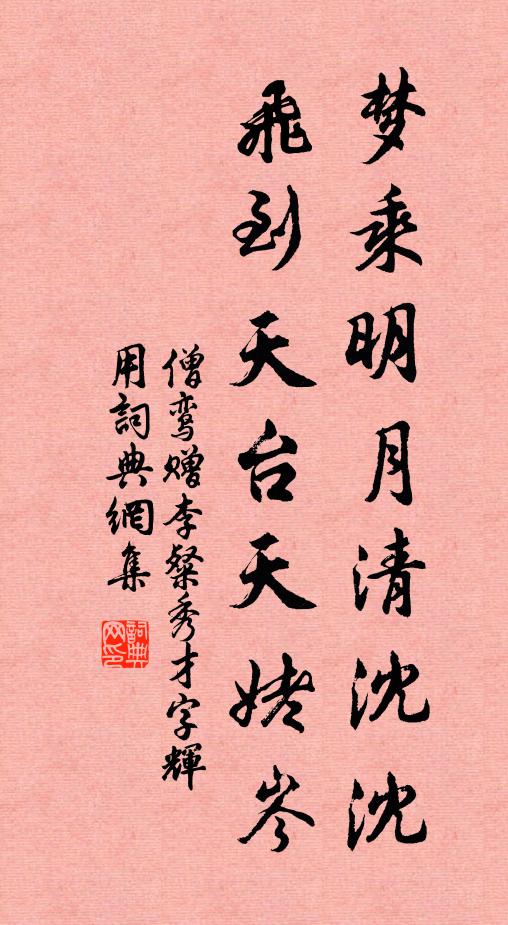 梦乘明月清沈沈
飛到天台天姥岑
僧鸾赠李粲秀才字輝
用詞典網集
詞典
网印